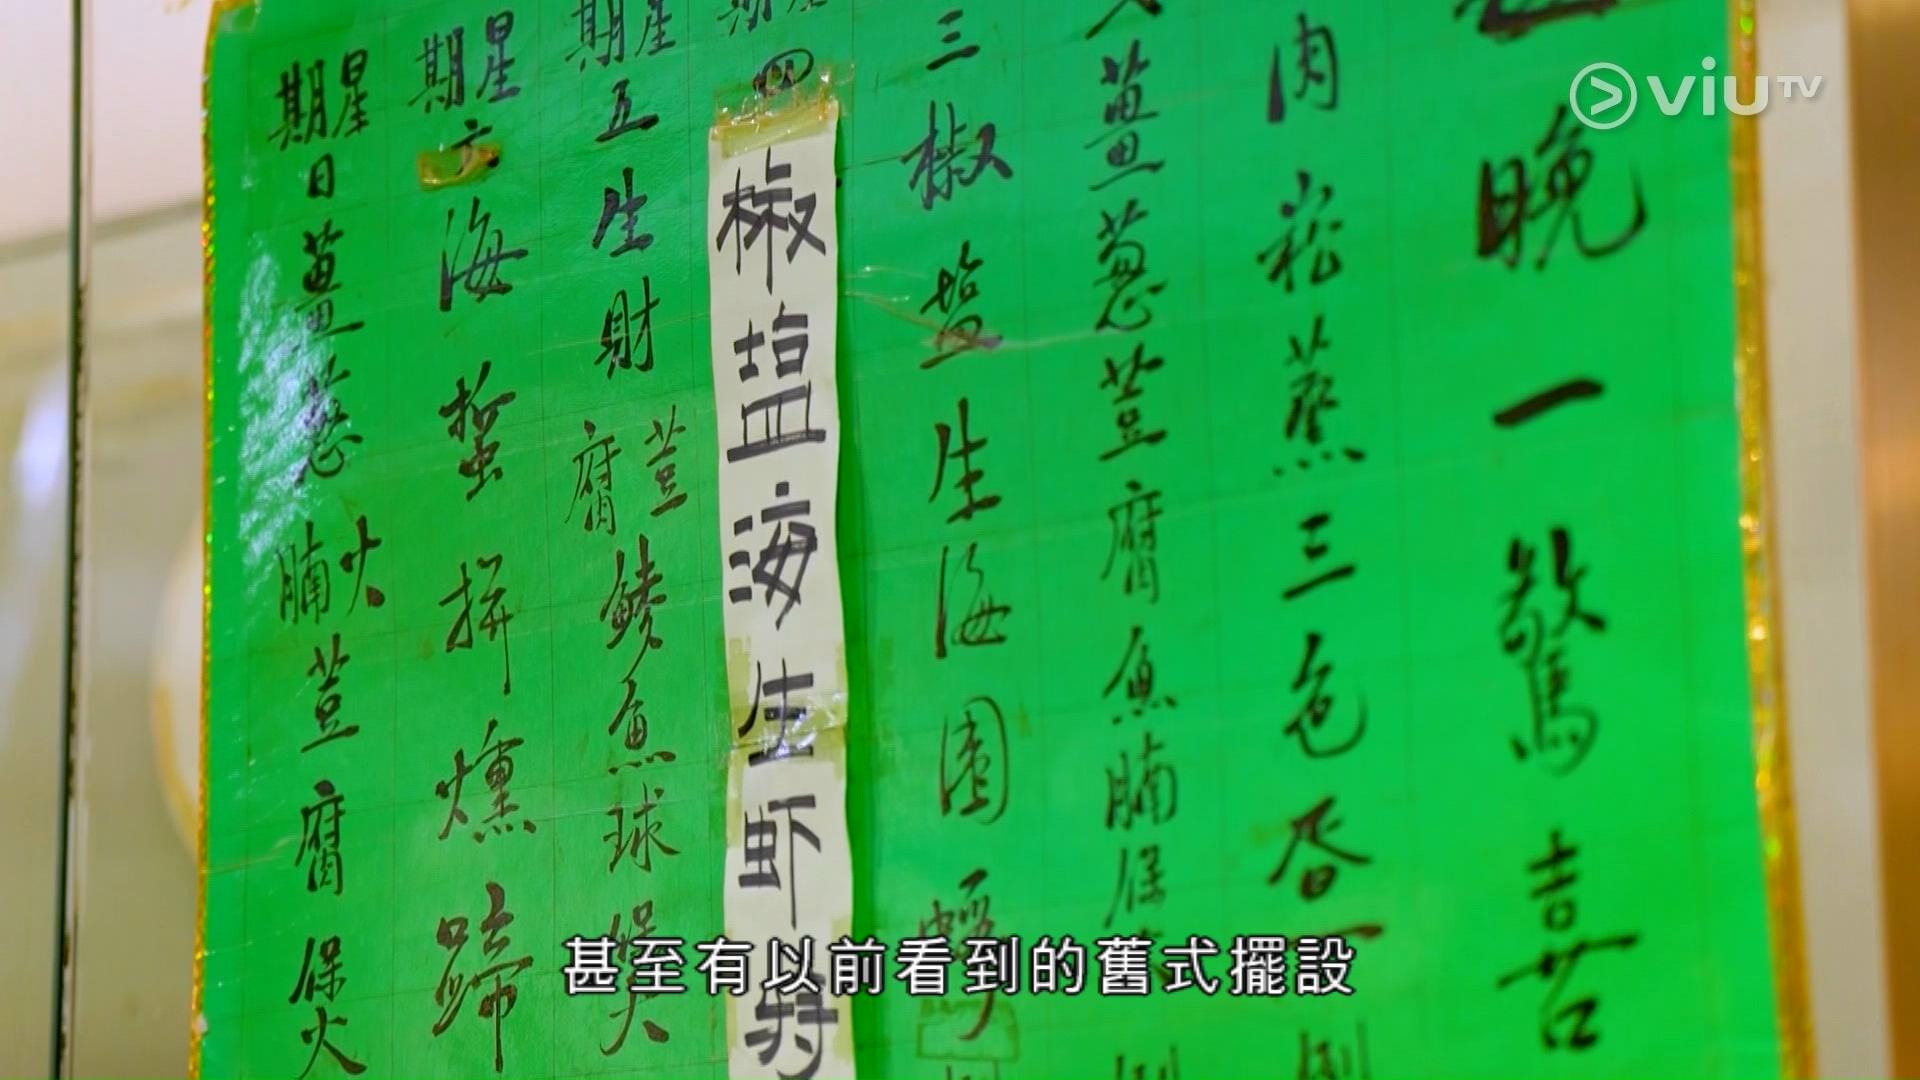 viuTV
晚一驚喜
肉崧蒸三色
薑葱荳腐魚腩保
三椒塩生海
四
椒塩海生虾
期星五生財荳腐鯪魚球保火
期星六海蜇拼燻蹄
期星日薑葱火腩荳腐保火
甚至有以前看到的舊式擺設